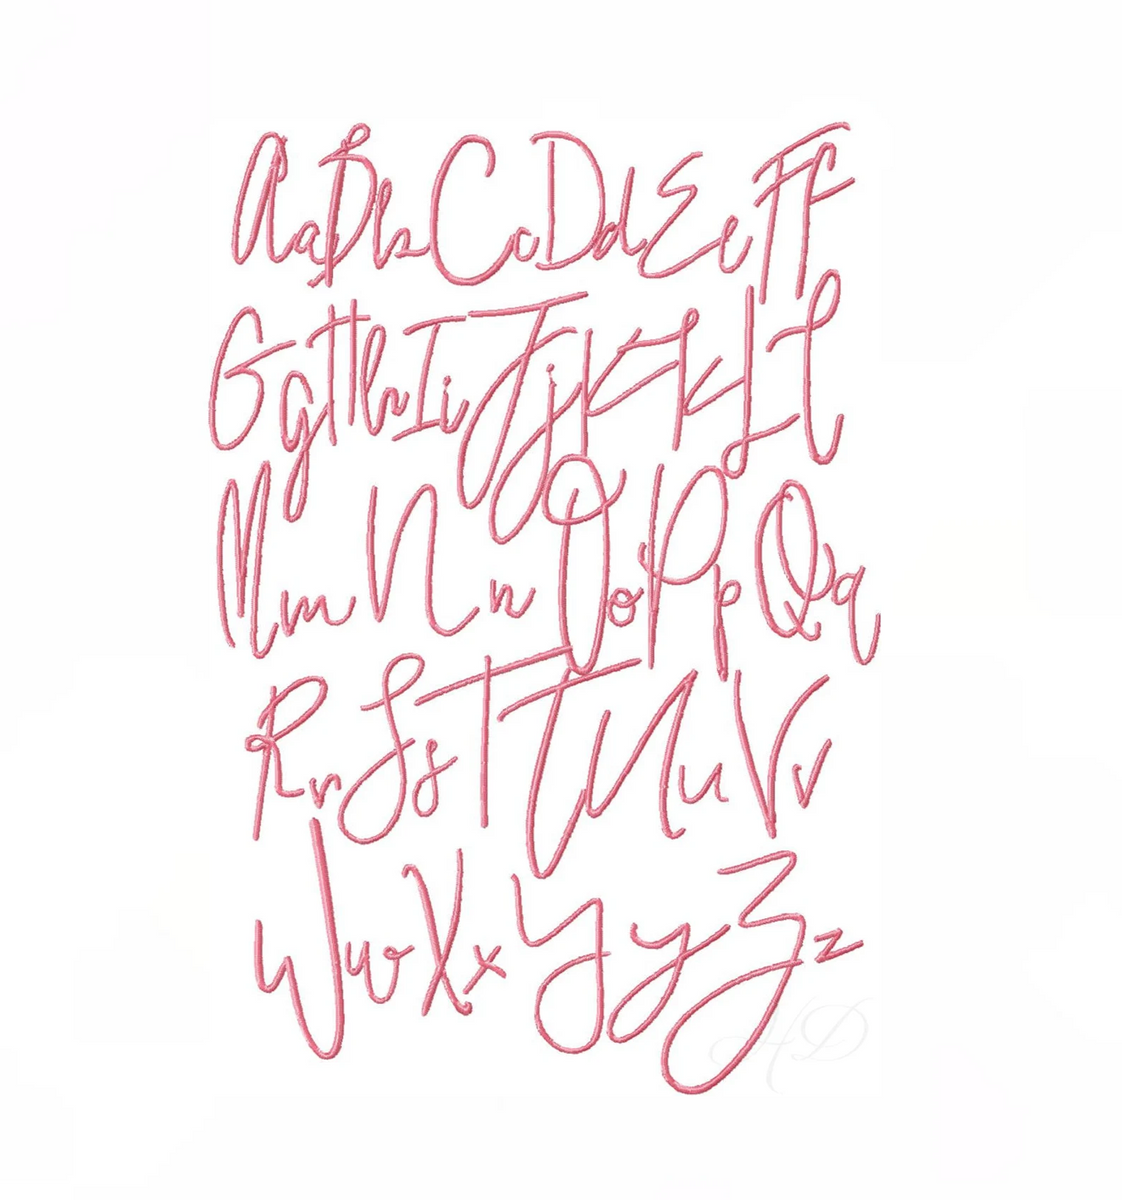 AaBbCcDdEeFf
GgHhIiJjKkLl
MmNnOoPpQq
RrSsTtUuVv
WwXxYyZz
HD